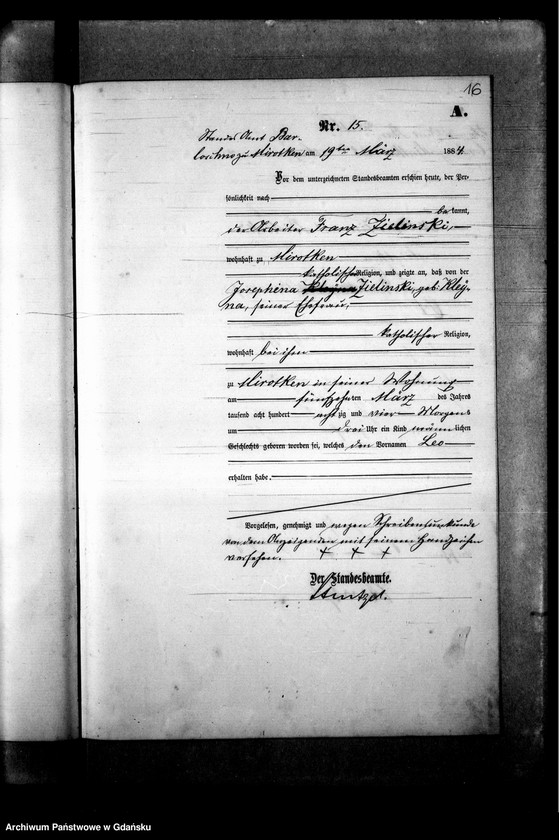 16
A.
Nr. 15.
Standes Amt Bar-
lozchno zu Mirotken am 19ten März 1884
Vor dem unterzeichneten Standesbeamten erschien heute, der Per-
sönlichkeit nach
be kannt,
der Arbeiter Franz Zielinski,
wohnhaft zu Mirotken
katholischer Religion, und zeigte an, daß von der
Josephina Zielinski, geb. Kley-
na, seiner Ehefrau,
katholischer Religion,
wohnhaft bei ihm
zu Mirotken in seiner Wohnung
am fünfzehnten März des Jahres
tausend acht hundert acht zig und vier Morgens
um drei Uhr ein Kind männ lichen
Geschlechts geboren worden sei, welches den Vornamen Leo
erhalten habe.
Vorgelesen, genehmigt und wegen Schreibensunkunde
von dem Anzeigenden mit seinem Handzeichen
versehen. + + +
Der Standesbeamte.
Archiwum Państwowe w Gdańsku